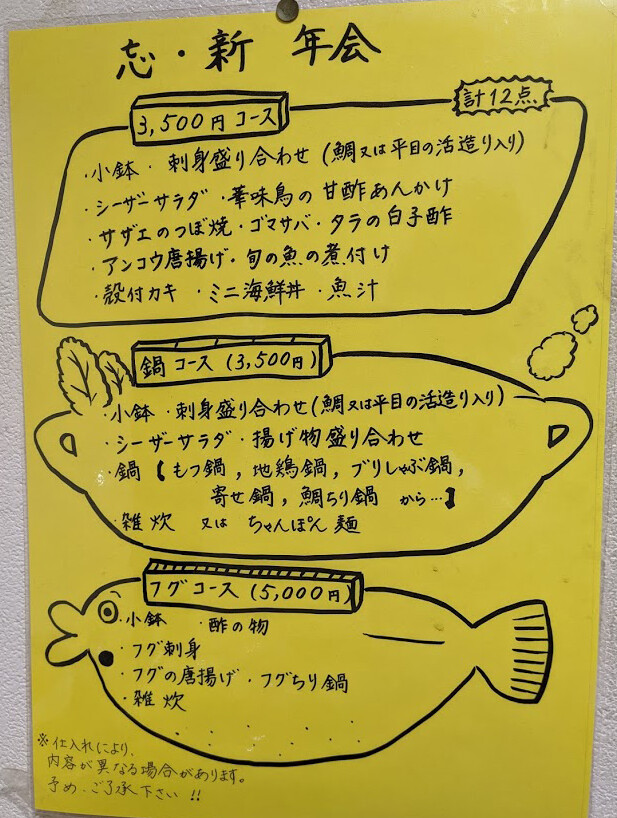 忘・新 年会
3,500円コース
計12点
・小鉢 ・刺身盛り合わせ(鯛又は平目の活造り入り)
・シーザーサラダ ・華味鳥の甘酢あんかけ
・サザエのつぼ焼・ゴマサバ・タラの白子酢
・アンコウ唐揚げ・旬の魚の煮付け
・殻付カキ ・ミニ海鮮丼 ・魚汁
鍋コース(3,500円)
・小鉢 ・刺身盛り合わせ(鯛又は平目の活造り入り)
・シーザーサラダ・揚げ物盛り合わせ
・鍋【もつ鍋,地鶏鍋,ブリしゃぶ鍋,
寄せ鍋,鯛ちり鍋 から…】
・雑炊 又は ちゃんぽん麺
フグコース(5,000円)
・小鉢 ・酢の物
・フグ刺身
・フグの唐揚げ・フグちり鍋
・雑炊
※仕入れにより、
内容が異なる場合があります。
予め、ご了承下さい!!